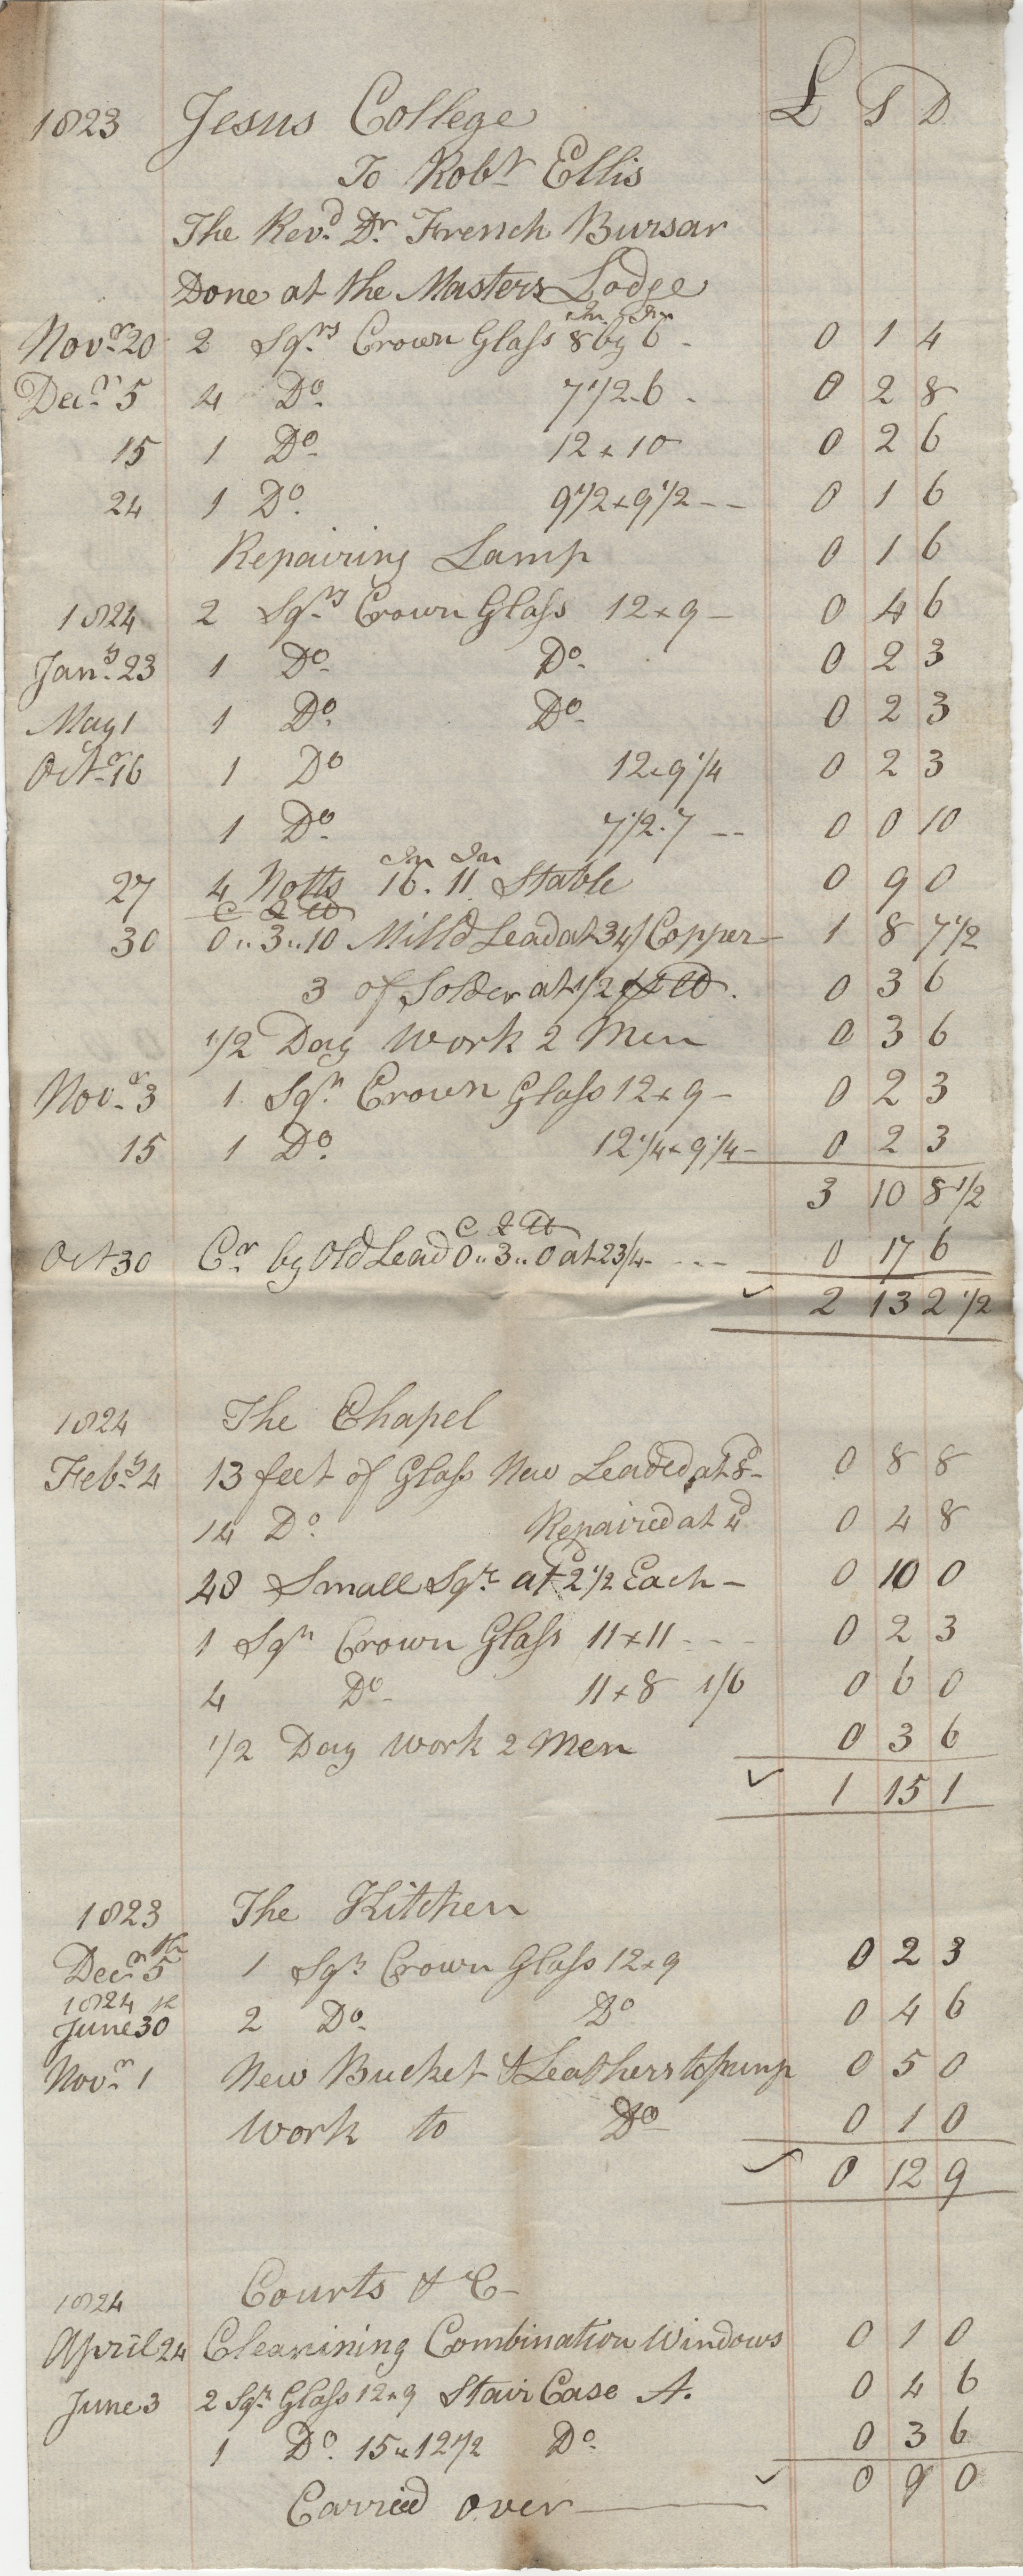 1823 Jesus College £ S D
To Robt Ellis
The Revd. Dr. French Bursar
Done at the Masters Lodge
In In
Novr. 20 2 Sqrs Crown Glass 8 by 6 - 0 1 4
Decr. 5 4 Do. 7 1/2 - 6 - 0 2 8
15 1 Do 12 x 10 0 2 6
24 1 Do. 9 1/2 x 9 1/2 - - 0 1 6
Repairing Lamp 0 1 6
1824 2 Sqrs Crown Glass 12 x 9 - 0 4 6
Jany. 23 1 Do. Do. 0 2 3
May 1 1 Do. Do. 0 2 3
Octr 16 1 Do 12 x 9 1/4 0 2 3
1 Do. 7 1/2 . 7 - - 0 0 10
In In
27 4 Notts 16 . 11 Stable 0 9 0
C Q lb
30 0 .. 3 .. 10 Mill'd Lead at 34/ Copper - 1 8 7 1/2
3 of Solder at 1/2 lb. 0 3 6
1/2 Day Work 2 Men 0 3 6
Novr. 3 1 Sqr. Crown Glass 12 x 9 - 0 2 3
15 1 Do. 12 1/4 x 9 1/4 - 0 2 3
3 10 8 1/2
C Q lb
Oct 30 Cr by Old Lead 0 .. 3 .. 0 at 23/4 - - - - 0 17 6
2 13 2 1/2
1824 The Chapel
Feby. 4 13 feet of Glass New Leaded at 8d - 0 8 8
14 Do. Repaired at 4d 0 4 8
48 Small Sqrs at 2 1/2d Each - 0 10 0
1 Sqr Crown Glass 11 x 11 - - - 0 2 3
4 Do 11 x 8 1/6 0 6 0
1/2 Day Work 2 Men 0 3 6
1 15 1
1823 The Kitchen
Decr 5th 1 Sqr. Crown Glass 12 x 9 0 2 3
1824
June 30th 2 Do. Do 0 4 6
Novr. 1 New Bucket & Leathers to pump 0 5 0
Work to Do 0 1 0
0 12 9
1824 Courts & C -
April 24 Cleanining Combination Windows 0 1 0
June 3 2 Sqrs Glass 12 x 9 Stair Case A. 0 4 6
1 Do. 15 x 12 1/2 Do. 0 3 6
0 9 0
Carried over